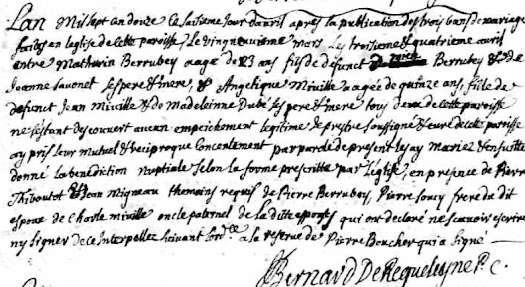 Lan Mil sept cen douze Ce saisieme Jour davril apres la publication des trois bans de mariage
faites en leglise de Cette paroisse, Le vingneuvieme mars les troisieme & quatrieme avril
entre Mathurin Berrubey aagé de 23 ans fils de defunct Berrubey & de
Jeanne Savonet ses pere & mere, & Angelique Miville aagée de quinze ans, fille de
defunct Jean Miville & de Madeleinne Dubé ses pere & mere tous deux de cette paroisse
ne sestant descouvert aucun empeichement legitime Je prestre soussigné & curé de cette parrisse
ay pris leur mutuel & reciproque Concentement par parole de present les ay mariez & ensuitte
donné la benediction nuptiale selon la forme prescritte par leglise, en presence de Pierre
Thiboutot & Jean Migneau themoins requis de Pierre Berrubey, Pierre Soucy frere du dit
espoux de Charle miville oncle paternel de laditte espouse qui ont declaré ne scavoir escrire
ny signer de ce Interpellez suivant lord.ce a la reserve de Pierre Boucher qui a signé
Bernard De Requeleyne P. C.